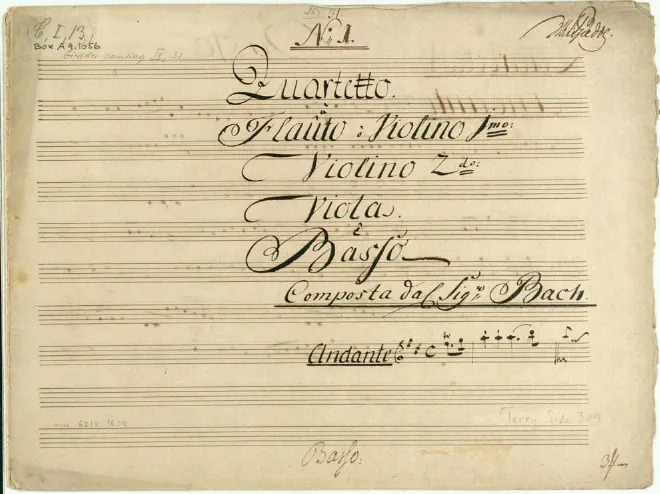 C, I, 13.
Box A 9.1056
Giedde's samling IV, 31
No: 1.
Quartetto.
à
Flauto ò Violino 1mo:
Violino 2do:
Viola.
è
Basso
Composta dal Sigre: Bach.
Andante
mu 6212.1634
Terry Side 309
Basso: